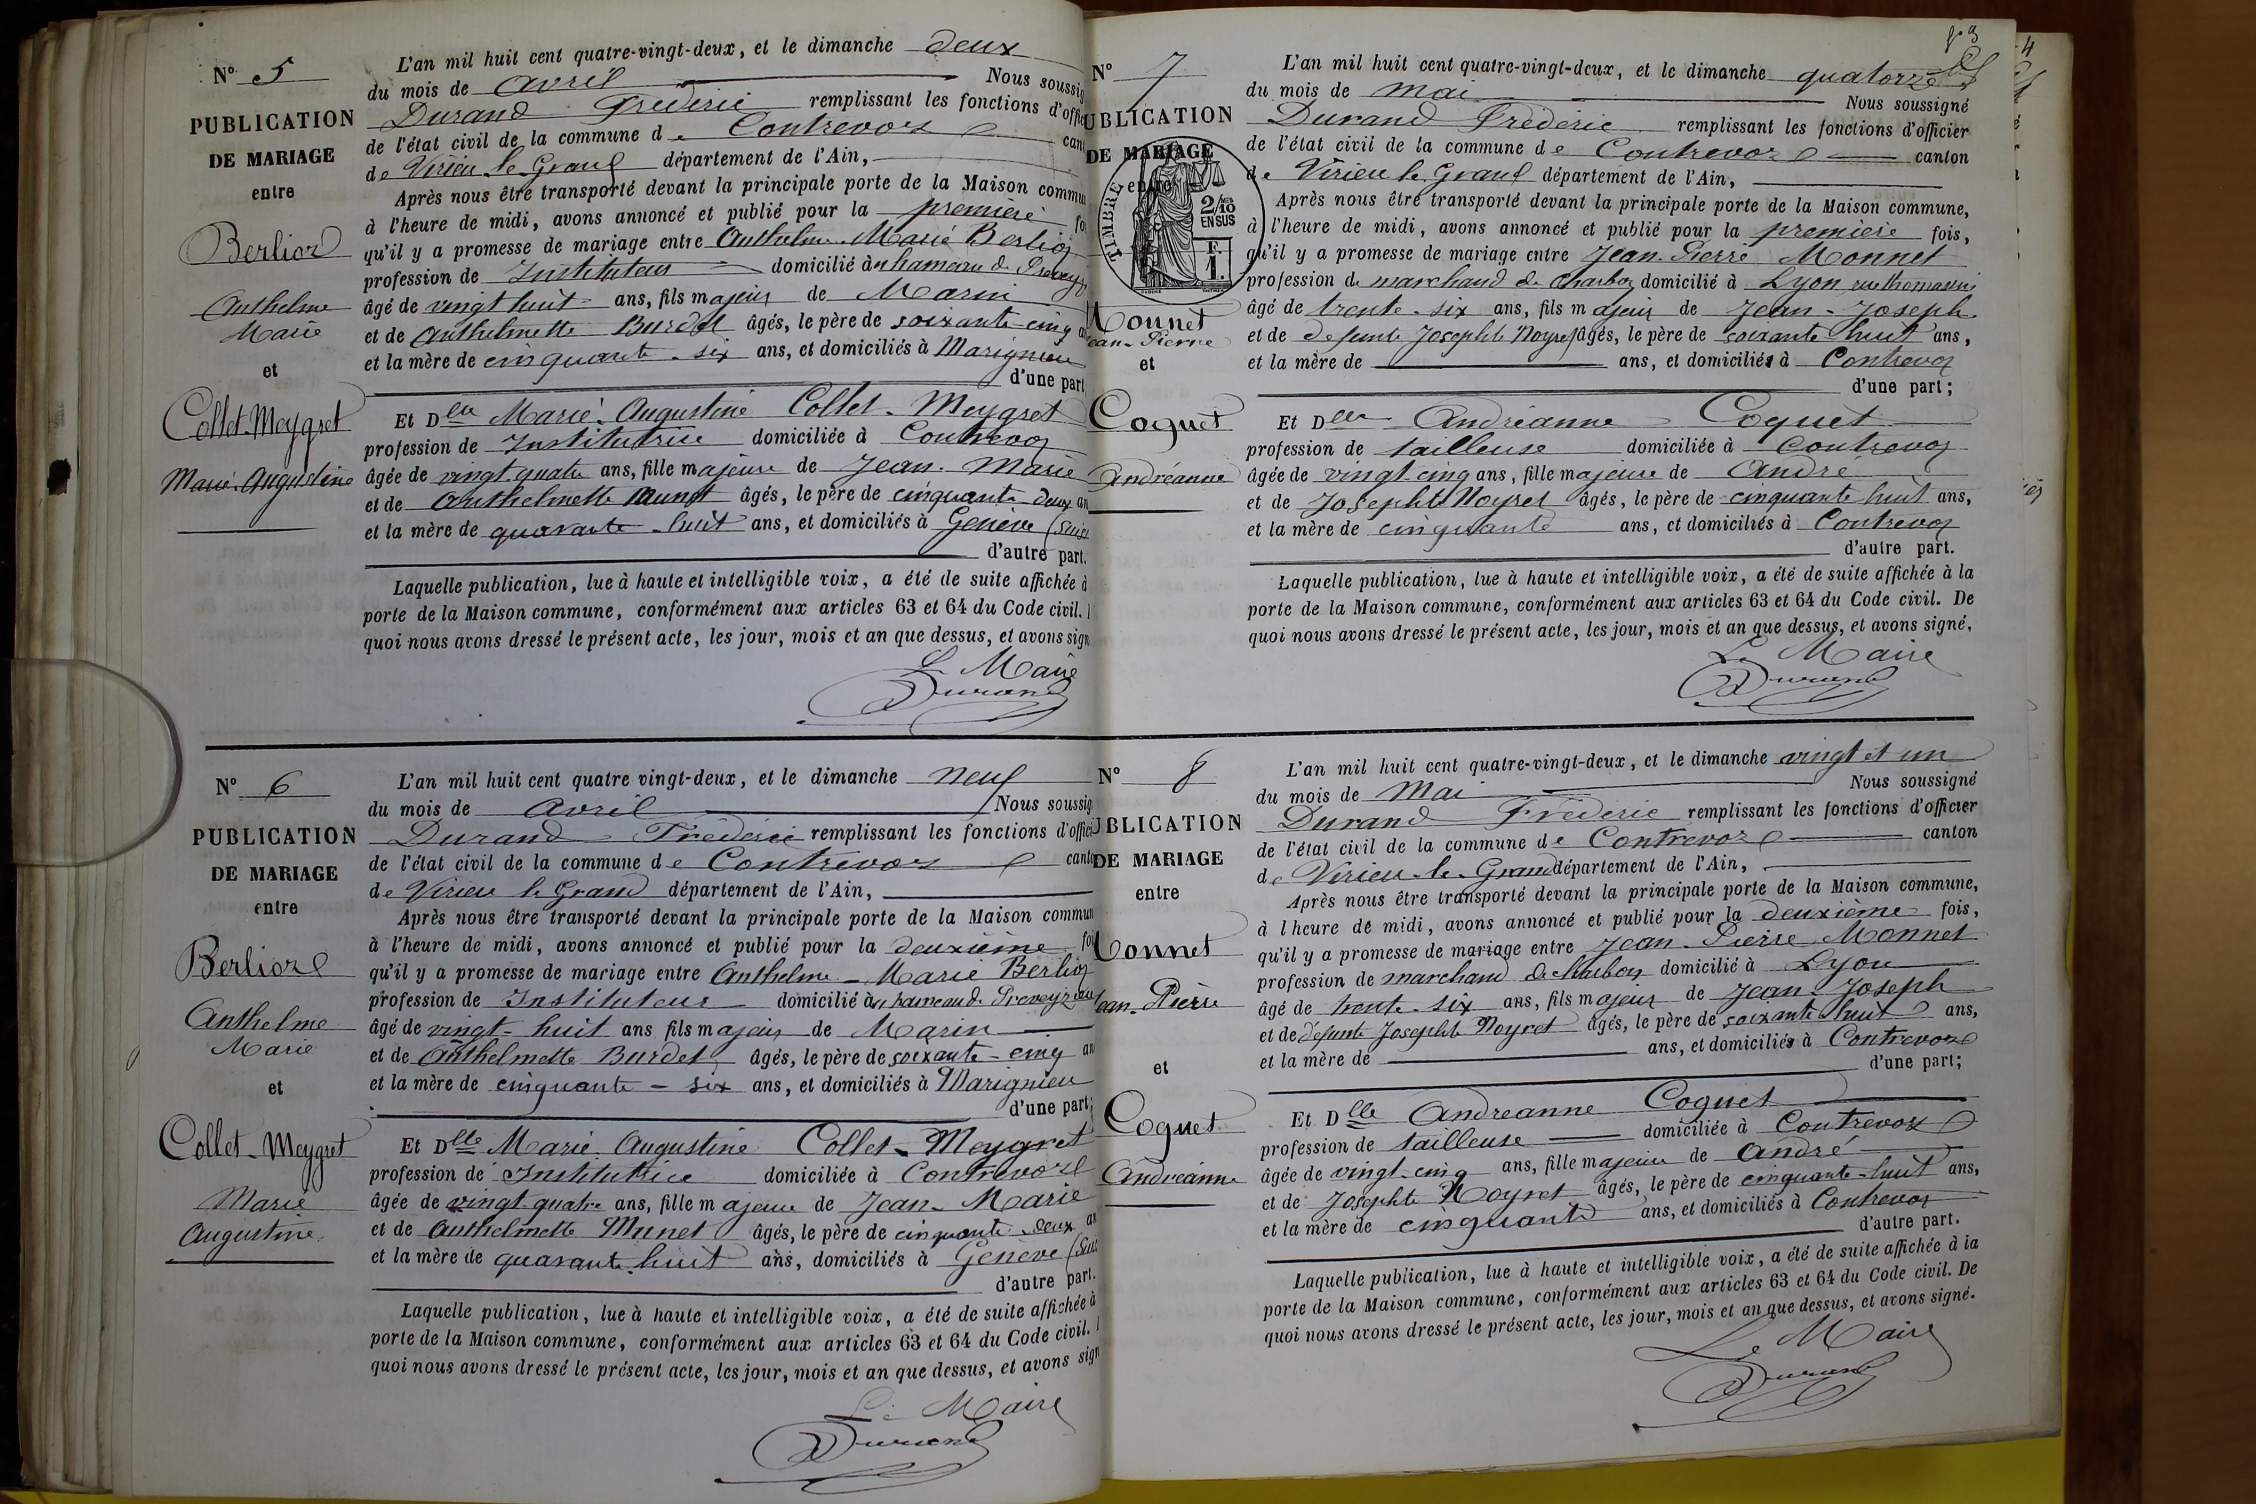 N° 5
PUBLICATION
DE MARIAGE
entre
Berlioz
Anthelme
Marie
et
Collet-Meygret
Marie-Augustine
L'an mil huit cent quatre-vingt-deux, et le dimanche deux
du mois de avril Nous soussig
Durand Frédéric remplissant les fonctions d'offic
de l'état civil de la commune de Contrevoz can
de Virieu-le-Grand département de l'Ain,
Après nous être transporté devant la principale porte de la Maison commun
à l'heure de midi, avons annoncé et publié pour la première foi
qu'il y a promesse de mariage entre Anthelme-Marie Berlioz
profession de Instituteur domicilié à hameau de
âgé de vingt huit ans, fils majeur de Marin
et de Anthelmette Burdet âgés, le père de soixante-cinq a
et la mère de cinquante-six ans, et domiciliés à Marignieu
d'une part
Et Dlle Marie-Augustine Collet-Meygret
profession de Institutrice domiciliée à Contrevoz
âgée de vingt-quatre ans, fille majeure de Jean-Marie
et de Anthelmette Munet âgés, le père de cinquante-deux an
et la mère de quarante-huit ans, et domiciliés à Genève (Suis
d'autre part.
Laquelle publication, lue à haute et intelligible voix, a été de suite affichée à
porte de la Maison commune, conformément aux articles 63 et 64 du Code civil.
quoi nous avons dressé le présent acte, les jour, mois et an que dessus, et avons sign
Le Maire
Durand
N° 6
PUBLICATION
DE MARIAGE
entre
Berlioz
Anthelme
Marie
et
Collet-Meygret
Marie
Augustine
L'an mil huit cent quatre vingt-deux, et le dimanche neuf
du mois de avril Nous soussig
Durand Frédéric remplissant les fonctions d'offici
de l'état civil de la commune de Contrevoz canto
de Virieu le Grand département de l'Ain,
Après nous être transporté devant la principale porte de la Maison commun
à l'heure de midi, avons annoncé et publié pour la deuxième foi
qu'il y a promesse de mariage entre Anthelme-Marie Berlioz
profession de Instituteur domicilié à hameau de
âgé de vingt-huit ans fils majeur de Marin
et de Anthelmette Burdet âgés, le père de soixante-cinq an
et la mère de cinquante-six ans, et domiciliés à Marignieu
d'une part;
Et Dlle Marie Augustine Collet-Meygret
profession de Institutrice domiciliée à Contrevoz
âgée de vingt quatre ans, fille majeure de Jean-Marie
et de Anthelmette Munet âgés, le père de cinquante-deux an
et la mère de quarante-huit ans, domiciliés à Genève (Suis
d'autre part.
Laquelle publication, lue à haute et intelligible voix, a été de suite affichée à
porte de la Maison commune, conformément aux articles 63 et 64 du Code civil.
quoi nous avons dressé le présent acte, les jour, mois et an que dessus, et avons sign
Le Maire
Durand
N° 7
UBLICATION
DE MARIAGE
entre
TIMBRE
2/10
EN SUS
F.
1.
Monnet
Jean-Pierre
et
Coquet
Andréanne
L'an mil huit cent quatre-vingt-deux, et le dimanche quatorze
du mois de mai Nous soussigné
Durand Frédéric remplissant les fonctions d'officier
de l'état civil de la commune de Contrevoz canton
de Virieu le Grand département de l'Ain,
Après nous être transporté devant la principale porte de la Maison commune,
à l'heure de midi, avons annoncé et publié pour la première fois,
qu'il y a promesse de mariage entre Jean-Pierre Monnet
profession de marchand de charbon domicilié à Lyon, rue Thomassin
âgé de trente-six ans, fils majeur de Jean-Joseph
et de defunte Josephte Noyret âgés, le père de soixante huit ans,
et la mère de ans, et domiciliés à Contrevoz
d'une part;
Et Dlle Andréanne Coquet
profession de tailleuse domiciliée à Contrevoz
âgée de vingt-cinq ans, fille majeure de André
et de Josephte Noyret âgés, le père de cinquante huit ans,
et la mère de cinquante ans, et domiciliés à Contrevoz
d'autre part.
Laquelle publication, lue à haute et intelligible voix, a été de suite affichée à la
porte de la Maison commune, conformément aux articles 63 et 64 du Code civil. De
quoi nous avons dressé le présent acte, les jour, mois et an que dessus, et avons signé.
Le Maire
Durand
N° 8
UBLICATION
DE MARIAGE
entre
Monnet
Jean-Pierre
et
Coquet
Andréanne
L'an mil huit cent quatre-vingt-deux, et le dimanche vingt et un
du mois de Mai Nous soussigné
Durand Frédéric remplissant les fonctions d'officier
de l'état civil de la commune de Contrevoz canton
de Virieu-le-Grand département de l'Ain,
Après nous être transporté devant la principale porte de la Maison commune,
à l'heure de midi, avons annoncé et publié pour la deuxième fois,
qu'il y a promesse de mariage entre Jean-Pierre Monnet
profession de marchand de charbon domicilié à Lyon
âgé de trente-six ans, fils majeur de Jean-Joseph
et de défunte Josephte Noyret âgés, le père de soixante huit ans,
et la mère de ans, et domiciliés à Contrevoz
d'une part;
Et Dlle Andreanne Coquet
profession de tailleuse domiciliée à Contrevoz
âgée de vingt-cinq ans, fille majeure de André
et de Josephte Noyret âgés, le père de cinquante-huit ans,
et la mère de cinquante ans, et domiciliés à Contrevoz
d'autre part.
Laquelle publication, lue à haute et intelligible voix, a été de suite affichée à la
porte de la Maison commune, conformément aux articles 63 et 64 du Code civil. De
quoi nous avons dressé le présent acte, les jour, mois et an que dessus, et avons signé.
Le Maire
Durand